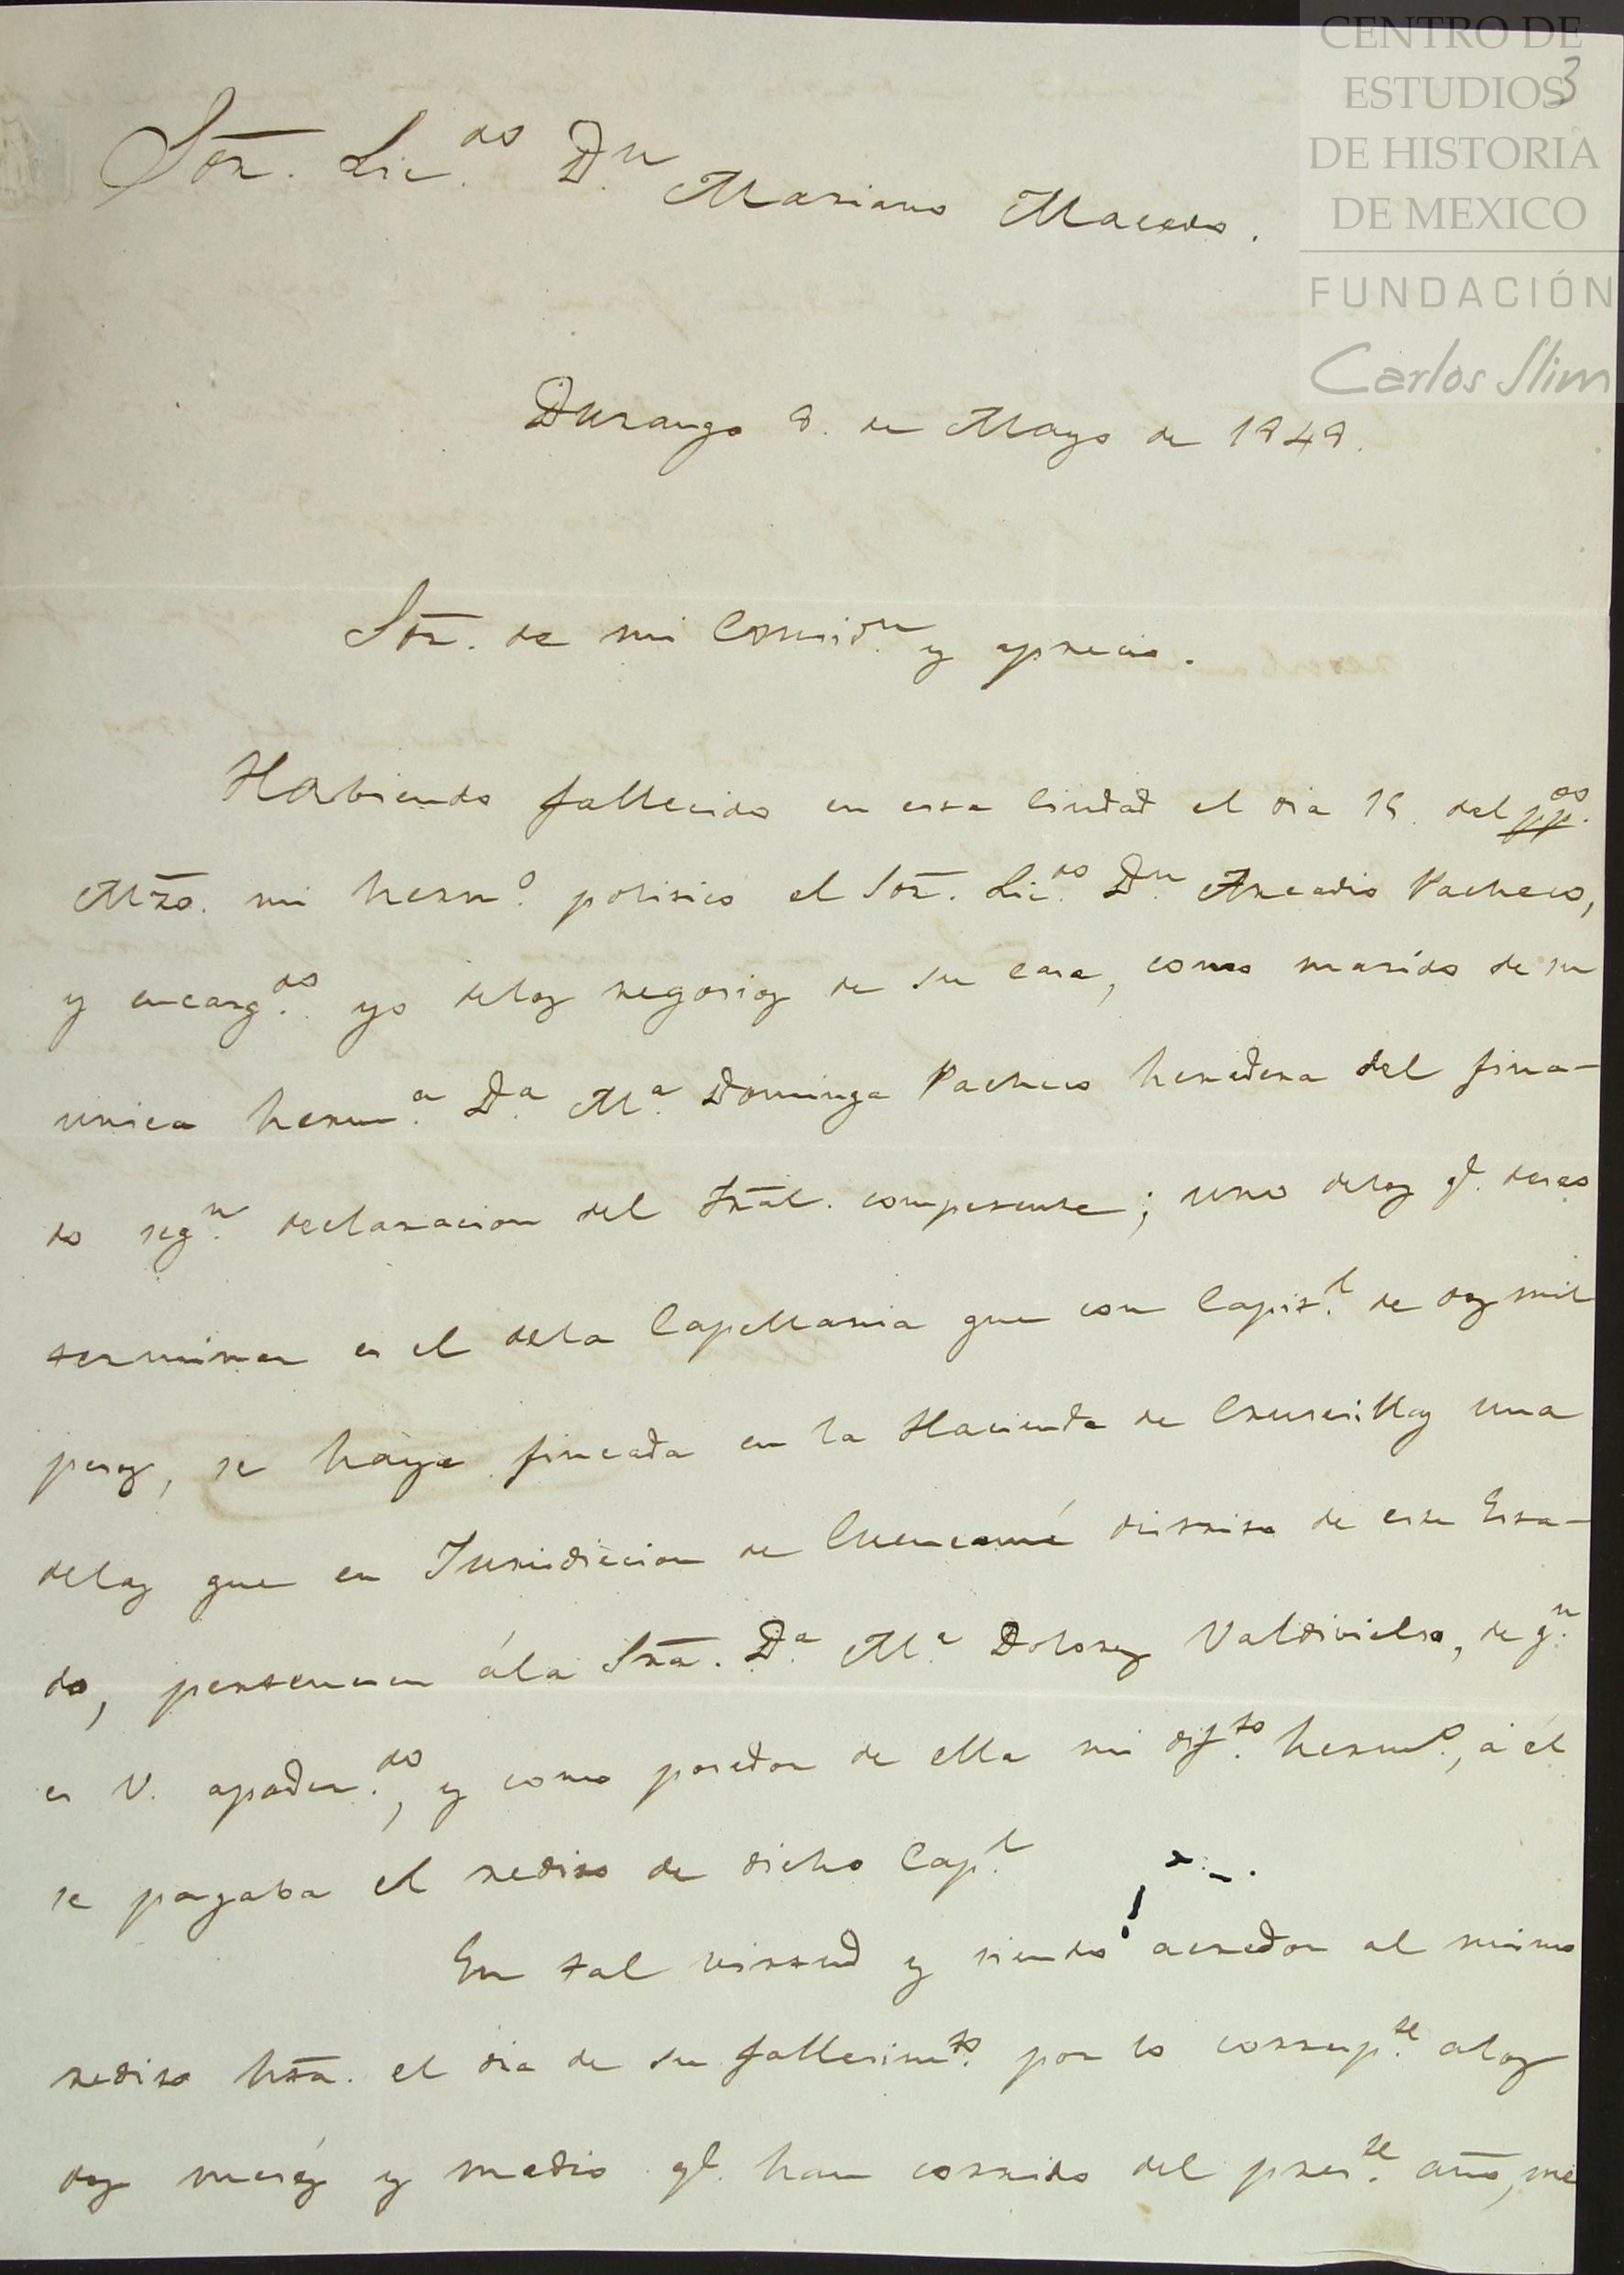 CENTRO DE
ESTUDIOS
DE HISTORIA
DE MEXICO
FUNDACIÓN
Carlos Slim
3
Sor. Lic.do D.n Mariano Macedo.
Durango 8. de Mayo de 1848.
Sor. de mi y aprecio.
Habiendo fallecido en esa Ciudad el dia 15. del pp.do
Mzo. mi herm.o politico el Sor. Lic.do D.n Arcadio Pacheco,
y encarg.do yo delos negocios de su casa, como marido de su
unica herm.a D.a M.a Dominga Pacheco heredera del fina-
do seg.n declaracion del Tral. competente; uno delos q.e deseo
terminar es el dela Capellania que con Capit.l de dos mil
pesos, se haya fincada en la Hacienda de Cruusillas una
delas que en Jurisdiccion de Cuencamé distrito de este Esta-
do, pertenecen ála Sra. D.a M.a Dolores Valdivielso, de q.n
es V. apoder.do, y como posedor de ella mi dif.to herm.o, á él
se pagaba el redito de dicho Cap.l
En tal virtud y siendo acredor al mismo
redito hta. el dia de su fallecim.to por lo corresp.te alos
dos meses y medio q.e han corrido del pres.te año, me